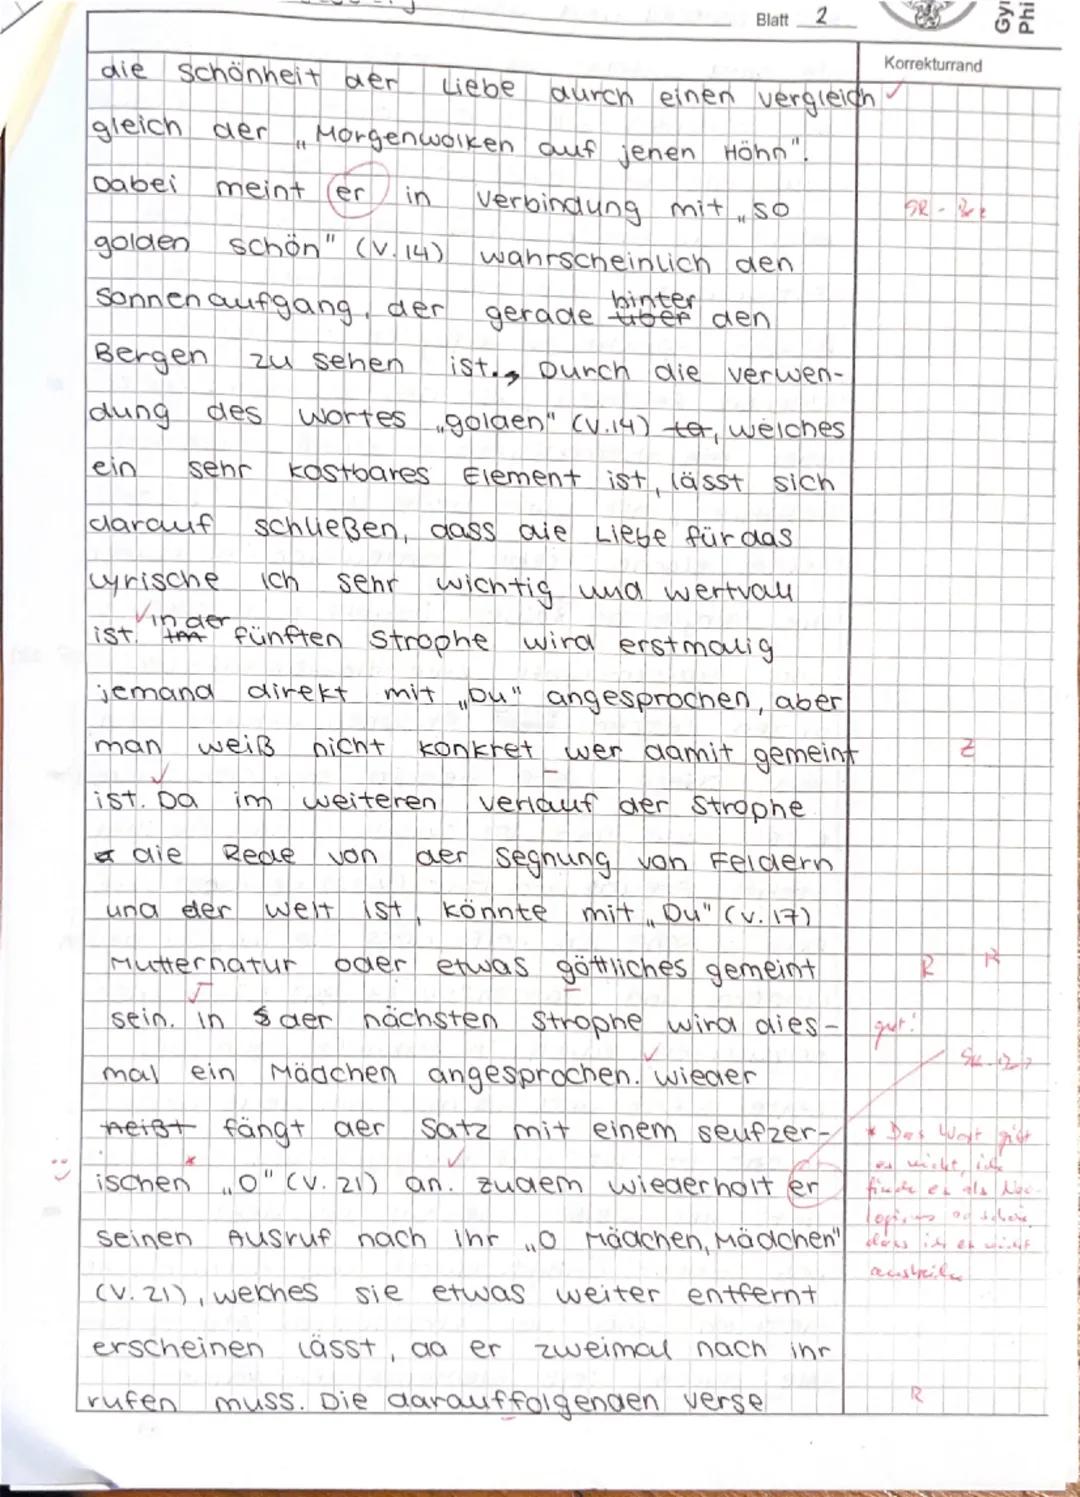 Blatt 2
Gy
Phi
Korrekturrand
die Schönheit der Liebe durch einen vergleich
gleich der „Morgenwolken auf jenen Höhn".
Dabei meint er in Verbindung mit „so
SR - Bez
golden schön" (V.14) wahrscheinlich den
Sonnenaufgang, der gerade über hinter den
Bergen zu sehen ist., Durch die verwen-
dung des Wortes „golden" (V.14) ter, welches
ein sehr kostbares Element ist, lässt sich
darauf schließen, dass die Liebe für das
lyrische Ich sehr wichtig und wertvoll
ist. Im In der fünften Strophe wird erstmalig
jemand direkt mit „Du" angesprochen, aber
man weiß nicht konkret wer damit gemeint
Z
ist. Da im weiteren Verlauf der Strophe
die Rede von der Segnung von Feldern
und der Welt ist, könnte mit „Du" (V.17)
Mutternatur oder etwas göttliches gemeint
R R
sein. In der nächsten Strophe wird dies-
gut!
mal ein Mädchen angesprochen. Wieder
SR - Bez
heißt fängt der Satz mit einem seufzer-
* Das Wort gibt
ischen „O" (V. 21) an. Zudem wiederholt er
es nicht, ich
finde es als Neo-
seinen Ausruf nach ihr „O Mädchen, Mädchen"
logismus so schön,
dass ich es nicht
(V. 21), welches sie etwas weiter entfernt
anstreiche
erscheinen lässt, da er zweimal nach ihr
rufen muss. Die darauffolgenden verse
R